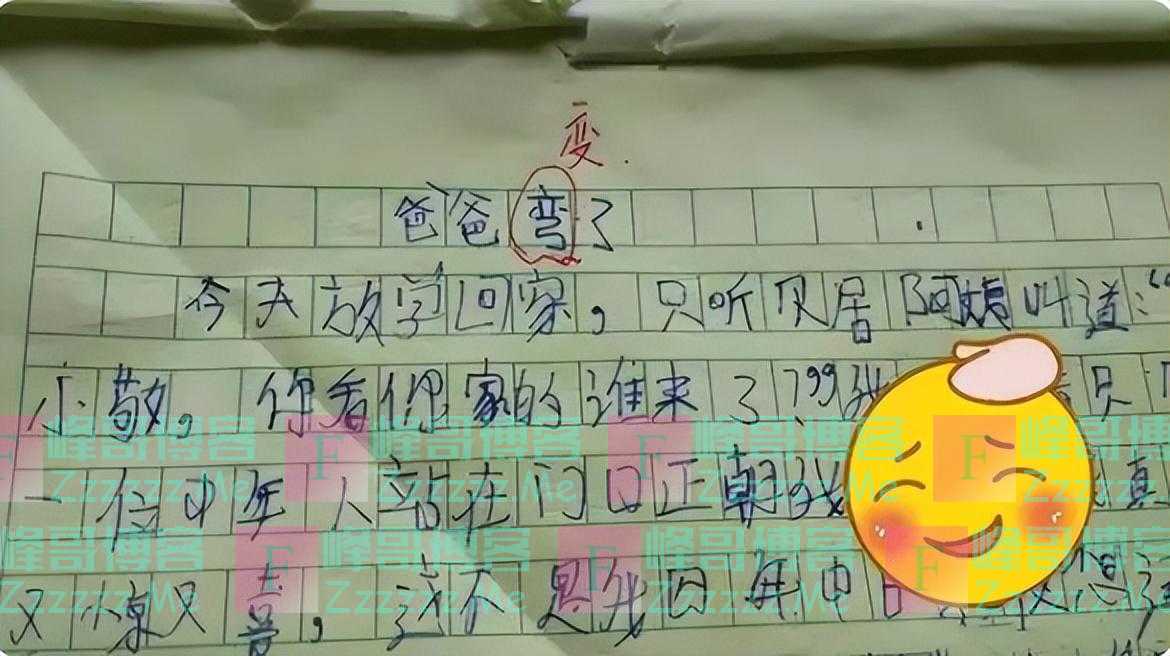 变
爸爸弯了
今天放学回家，只听贝居阿姨叫道：“
小敬，你看你家的谁来了？”我 只
一位中年人站在门口正朝我 真
又惊又喜，这不是我 中
F 峰哥博客
Zzzzzz.Me
F 峰哥博客
Zzzzzz.Me
F 峰哥博客
Zzzzzz.Me
峰哥博客
Zzzzzz.Me
F 峰哥博客
Zzzzzz.Me
F 峰哥博客
Zzzzzz.Me
F 峰哥博客
Zzzzzz.Me